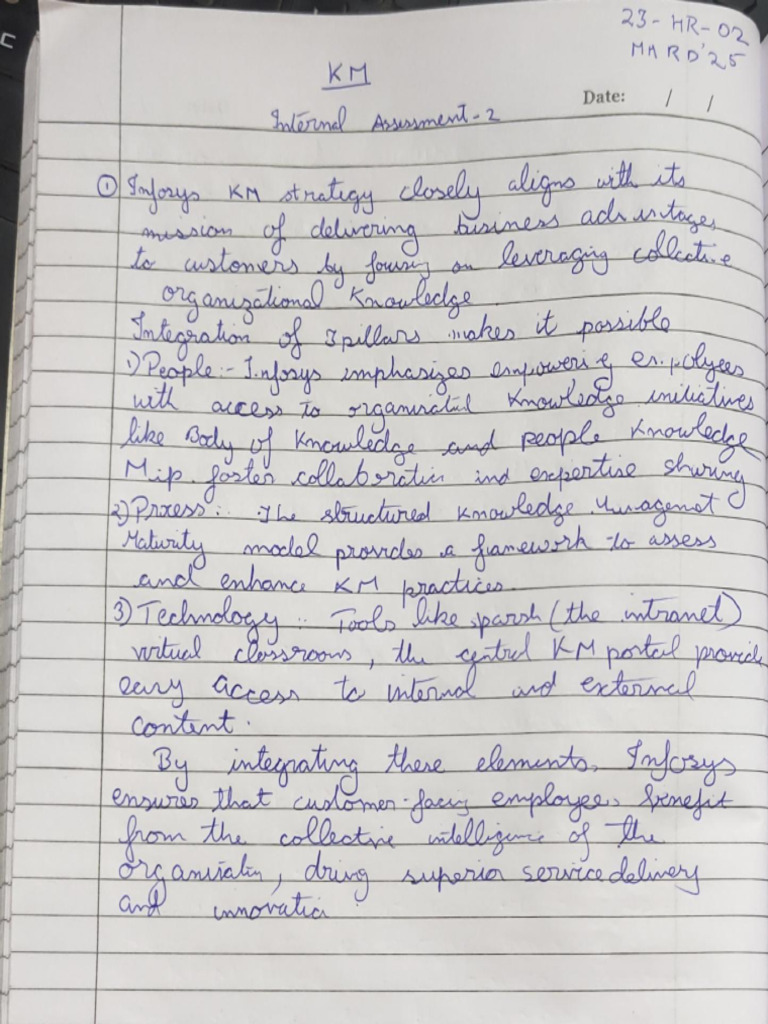 23-HR-02
MHRD'25
KM
Date: / /
Internal Assessment-2
① Infosys KM strategy closely aligns with its
mission of delivering business advantages
to customers by focusing on leveraging collective
organizational Knowledge
Integration of 3 pillars makes it possible
1) People:- Infosys emphasizes empowering employees
with access to organisational Knowledge initiatives
like Body of Knowledge and People Knowledge
Map foster collaboration and expertise sharing
2) Process:- The structured Knowledge Management
Maturity model provides a framework to assess
and enhance KM practices.
3) Technology:- Tools like sparsh (the intranet)
virtual classroom, the central KM portal provide
easy access to internal and external
content.
By integrating these elements, Infosys
ensures that customer-facing employees benefit
from the collective intelligence of the
organisation, driving superior service delivery
and innovation